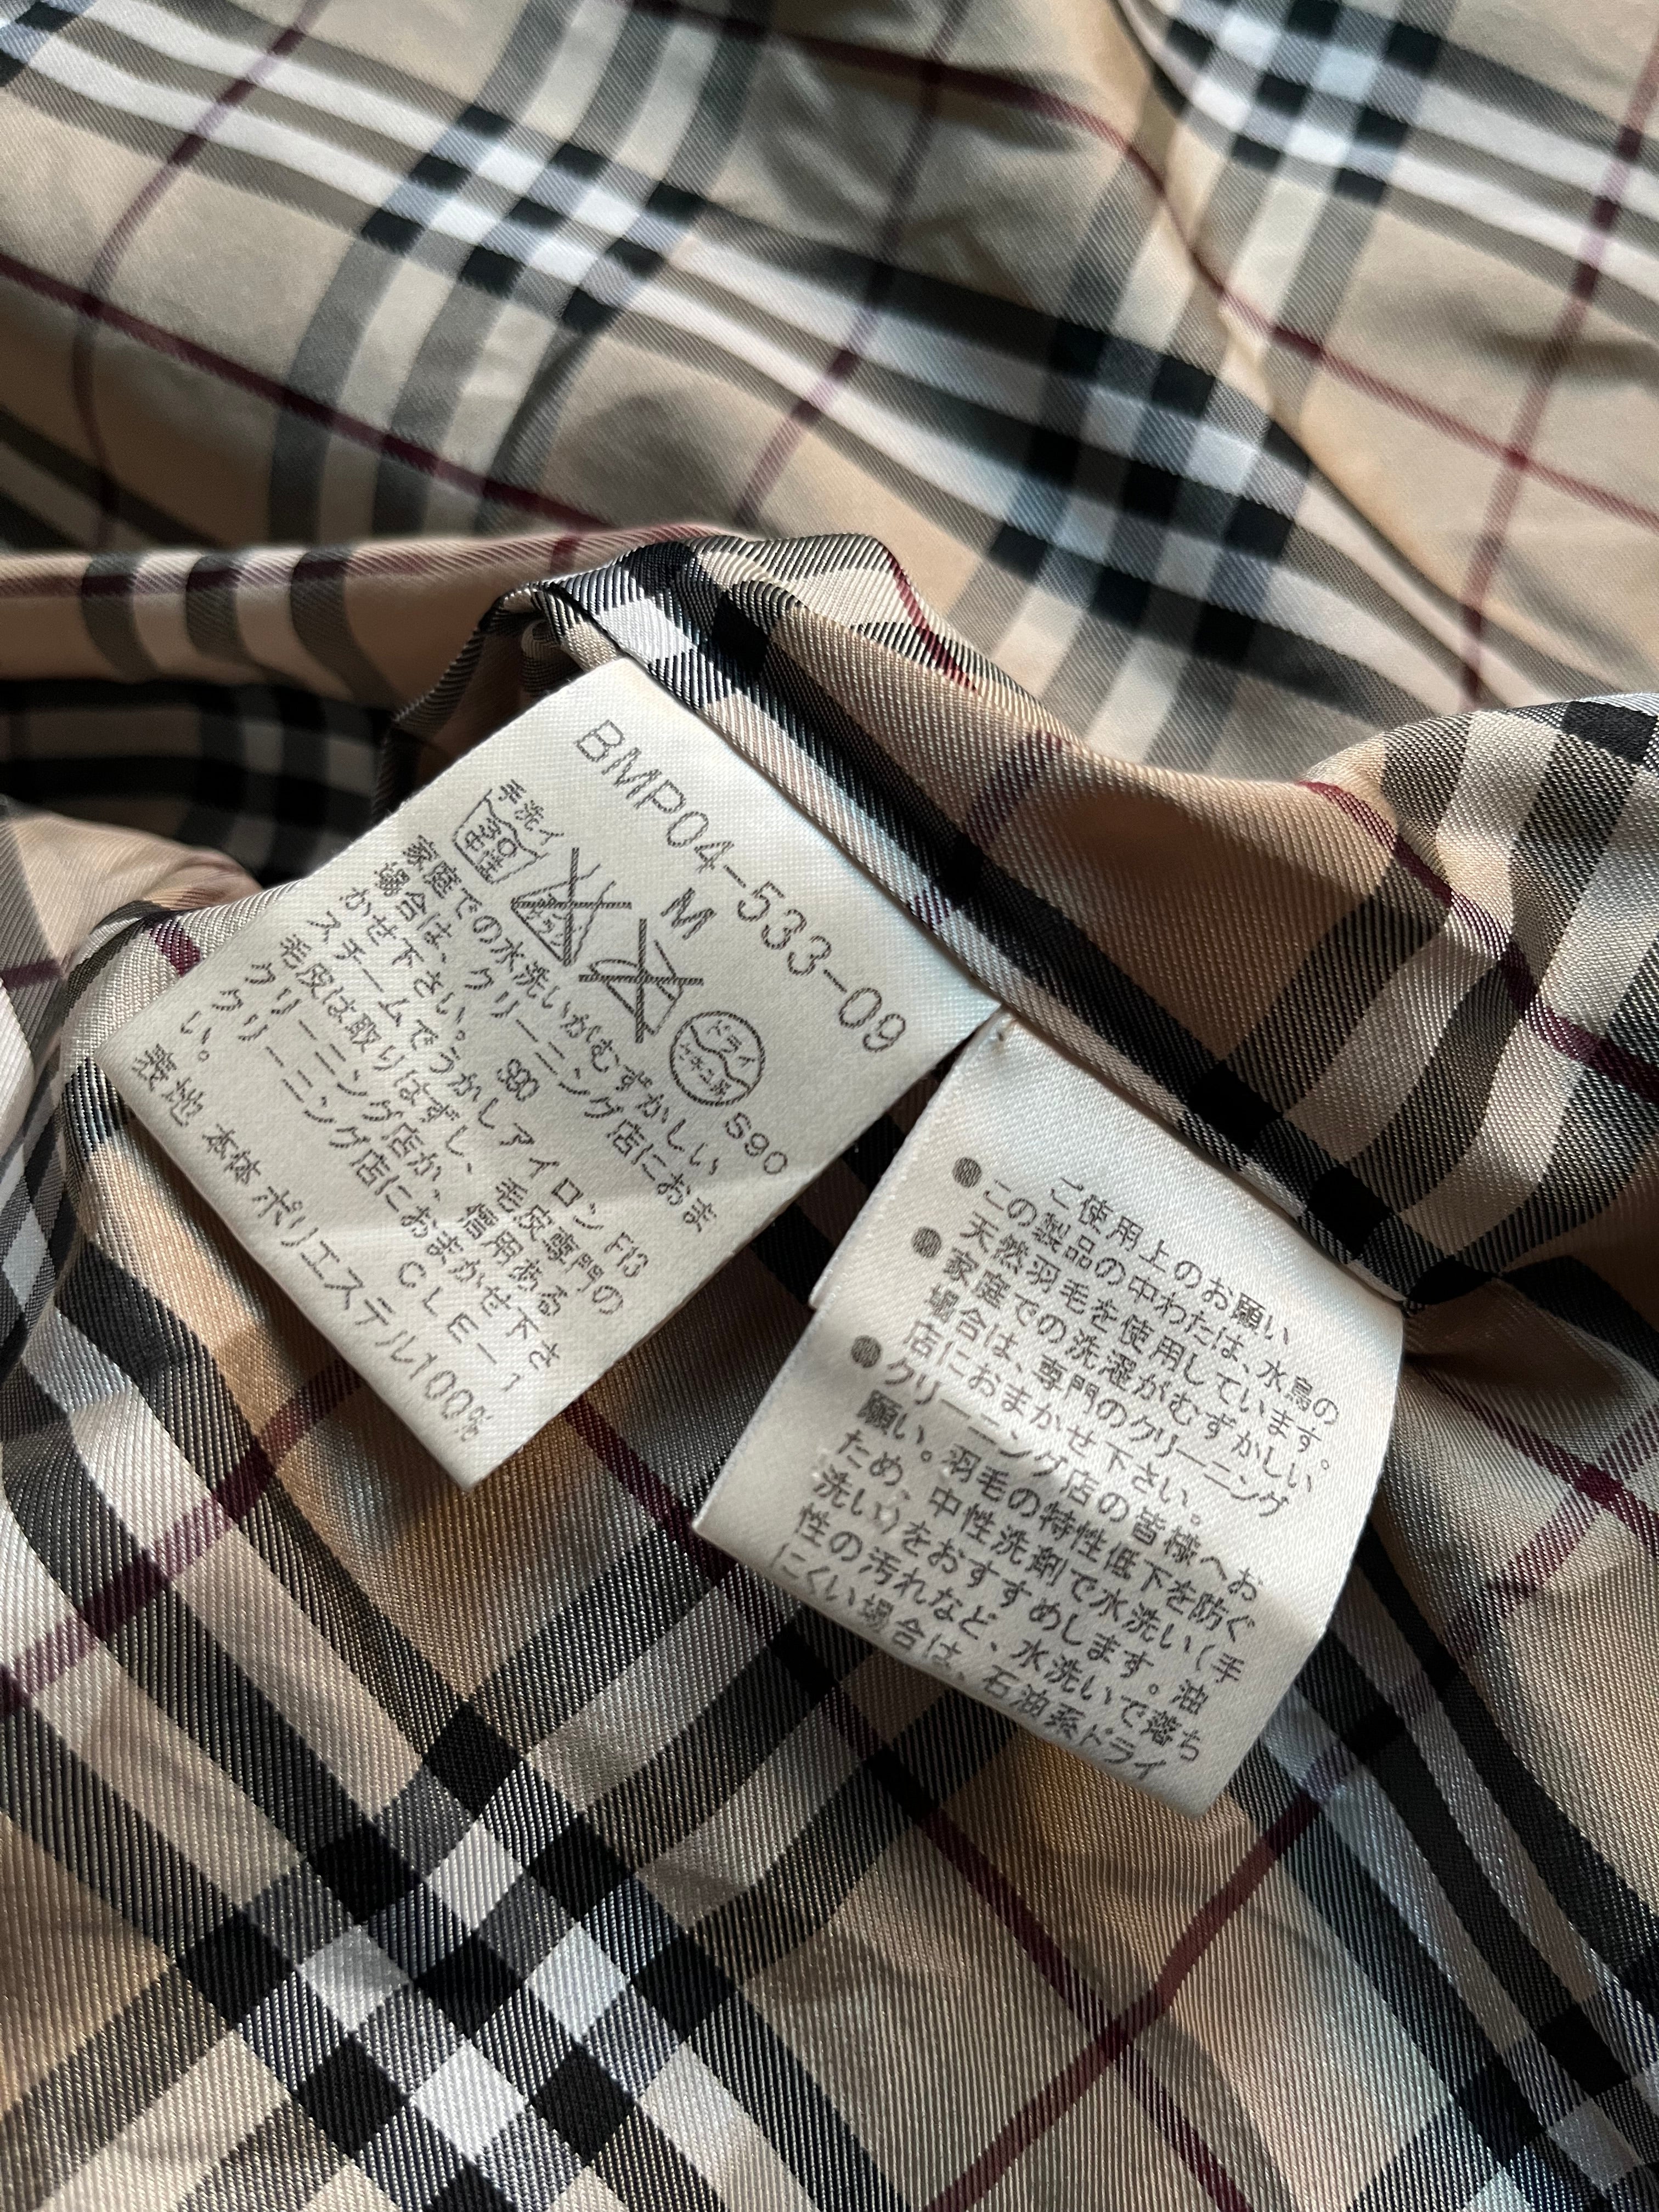 BMP04-533-09
M
手洗イ
30
中性
エンソサラシ
ドライ
セキユ系
S90
家庭での水洗いがむずかしい
場合は、クリーニング店におま
かせ下さい。 S80
スチームでうかしアイロン F13
毛皮は取りはずし、毛皮専門の
クリーニング店か、信用ある
クリーニング店におまかせ下さ
い。 CLE-1
表地 本体 ポリエステル100%
ご使用上のお願い
●この製品の中わたは、水鳥の
天然羽毛を使用しています。
●家庭での洗濯がむずかしい
場合は、専門のクリーニング
店におまかせ下さい。
●クリーニング店の皆様へお
願い。羽毛の特性低下を防ぐ
ため、中性洗剤で水洗い(手
洗い)をおすすめします。油
性の汚れなど、水洗いで落ち
にくい場合は、石油系ドライ